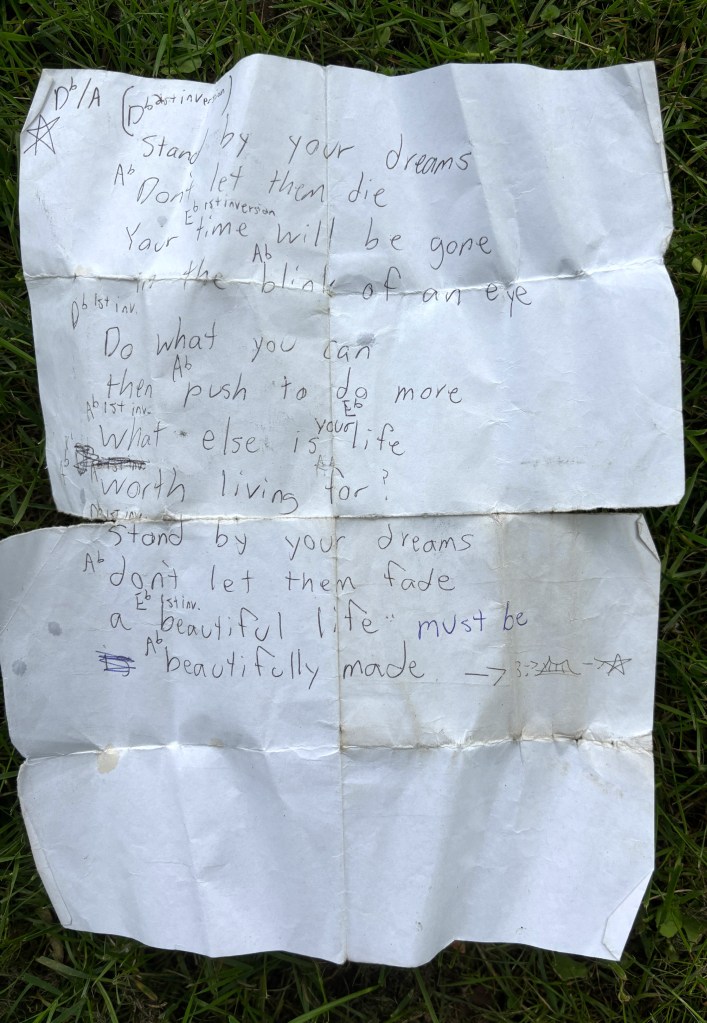 Db/A (Db 1st inversion)
Stand by your dreams
Ab
Dont let them die
Eb 1st inversion
Your time will be gone
Ab
in the blink of an eye
Db 1st inv.
Do what you can
Ab
then push to do more
Ab 1st inv. Eb
What else is your life
worth living for?
Db 1st inv.
Stand by your dreams
Ab
don't let them fade
Eb 1st inv.
a beautiful life must be
Ab
beautifully made →